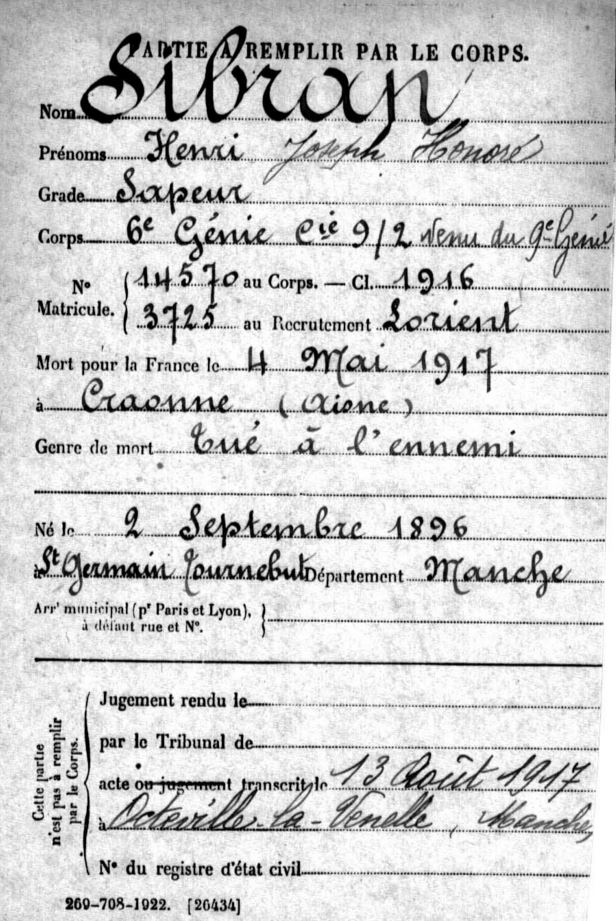 PARTIE A REMPLIR PAR LE CORPS.
Nom Sibran
Prénoms Henri Joseph Honoré
Grade Sapeur
Corps 6e Génie Cie 9/2 venu du 9e Génie
No Matricule. 14570 au Corps. — Cl. 1916
3725 au Recrutement Lorient
Mort pour la France le 4 Mai 1917
à Craonne (Aisne)
Genre de mort Tué à l'ennemi
Né le 2 Septembre 1896
à St Germain Tournebut Département Manche
Arrt municipal (pr Paris et Lyon),
à défaut rue et No.
Cette partie n'est pas à remplir par le Corps.
Jugement rendu le
par le Tribunal de
acte ou jugement transcrit le 13 Août 1917
à Octeville-la-Venelle, Manche
No du registre d'état civil
269-708-1922. [26434]